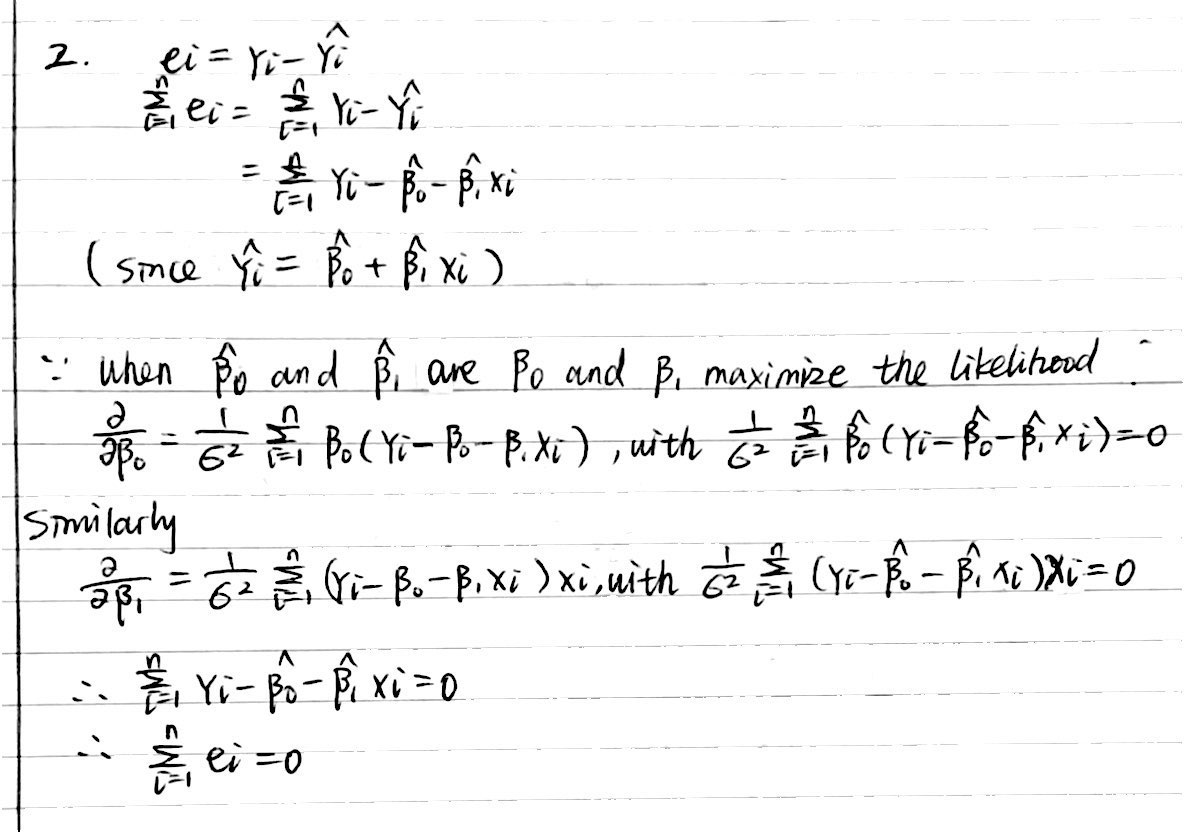 2. ei = Yi − Ŷi
∑_{i=1}^{n} ei = ∑_{i=1}^{n} Yi − Ŷi
= ∑_{i=1}^{n} Yi − β̂₀ − β̂₁ xi
(since Ŷi = β̂₀ + β̂₁ xi)
∵ when β̂₀ and β̂₁ are β₀ and β₁ maximize the likelihood :
∂/∂β₀ = 1/σ² ∑_{i=1}^{n} β₀(Yi − β₀ − β₁xi), with 1/σ² ∑_{i=1}^{n} β̂₀(Yi − β̂₀ − β̂₁xi) = 0
Similarly
∂/∂β₁ = 1/σ² ∑_{i=1}^{n} (Yi − β₀ − β₁xi)xi, with 1/σ² ∑_{i=1}^{n} (Yi − β̂₀ − β̂₁xi)xi = 0
∴ ∑_{i=1}^{n} Yi − β̂₀ − β̂₁ xi = 0
∴ ∑_{i=1}^{n} ei = 0